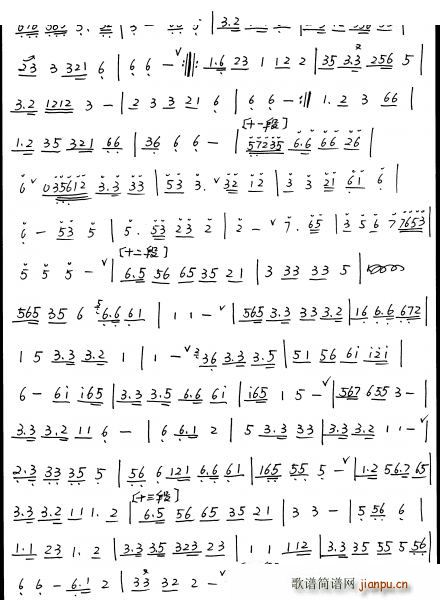 2̇3 3 321 6 | 6 6 - ˅ :||: 1.6 23 1 12 2 | 35 3.3 256 5
3.2 1212 3 - | 2 3 3 21 6 | 6 6 - :|| 1. 2 3 66 |
1.2 35 321 66 | 36 6 6 - | [十一段] 57235 6.6 66 26 |
6 ˅ 035612 3.3 33 | 53 3. ˅ 32 12 | 3 3 21 61 6 |
6 - 53 5 | 5. 53 23 2 | 2 - ˅ 7. 65 | 3 5 6 7 7653 |
5 5 5 - ˅ | [十二段] 6.5 56 65 35 21 | 3 33 33 5 |
565 35 6 6.6 61 | 1 1 - ˅ | 565 3.3 33 3.2 | 16 6.6 672 |
1 5 3.3 3.2 1 | 1 - ˅ 36 3.3 3.5 | 51 56 61 121 |
6 - 61 165 | 3.3 3.5 6.6 61 | 165 1 5 - ˅ | 567 655 3 - |
3.3 3.2 11 6 - | 6 6.1 2 | 5 3.3 33 | 3.3 3.2 1 1 - ˅ |
2.3 33 35 5 | 56 6 121 6.6 61 | 165 55 5 - ˅ | 1.2 56.2 65 |
3.3 3.2 11 1. 2 | [十三段] 6.5 56 65 35 21 | 3 3 - | 5 56 6 |
1.1 23 1. 2 | 3.3 35 323 23 | 1 1 112 | 3.3 35 55 5 56 |
6 6 - 6.1 2 | 33 32 2 - ˅
歌谱简谱网
jianpu.cn